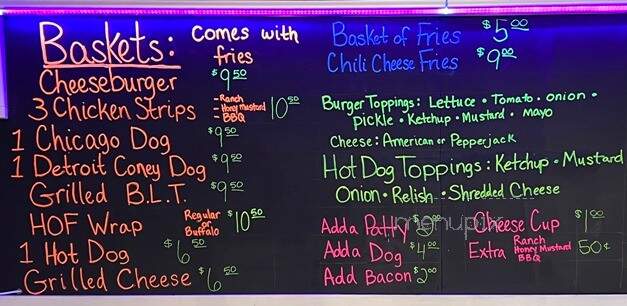 Baskets: Comes with
fries
Cheeseburger $9.50
3 Chicken Strips - Ranch - Honey Mustard - BBQ 10.50
1 Chicago Dog $9.50
1 Detroit Coney Dog $9.50
Grilled B.L.T. $9.50
HOF Wrap Regular or Buffalo $10.50
1 Hot Dog $6.50
Grilled Cheese $6.50
Basket of Fries $5.00
Chili Cheese Fries $9.00
Burger Toppings: Lettuce • Tomato • onion •
pickle • Ketchup • Mustard • Mayo
Cheese: American or Pepperjack
Hot Dog Toppings: Ketchup • Mustard
Onion • Relish • Shredded Cheese
Add a Patty
Add a Dog $4.00
Add Bacon $2.00
Cheese Cup $1.00
Extra Ranch Honey Mustard BBQ 50¢
menupix